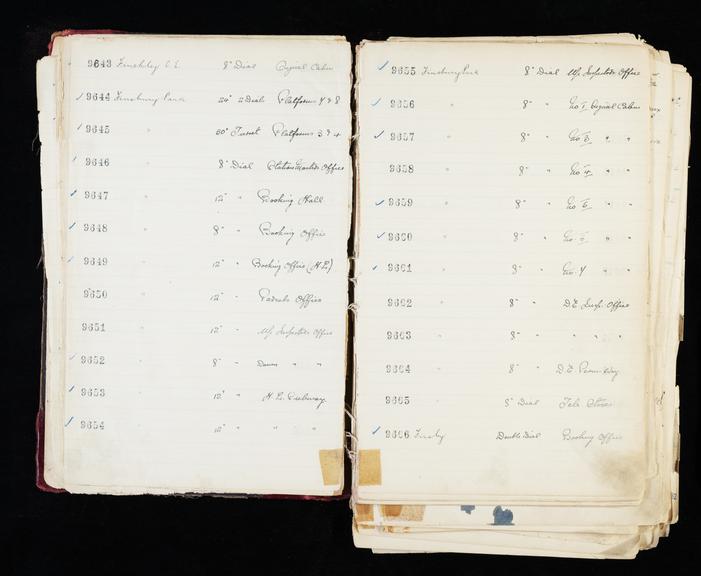 9643 Finchley C.E. 8" Dial Signal Cabin
9644 Finsbury Park 20" 2 Dials Platforms 7 & 8
9645 " 20" Turret Platforms 3 & 4
9646 " 8" Dial Station Masters Office
9647 " 12" " Booking Hall
9648 " 8" " Booking Office
9649 " 12" " Booking Office (H.L.)
9650 " 12" " Parcels Office
9651 " 12" " Up Inspectors Office
9652 " 8" " Down " "
9653 " 12" " H.L. Subway
9654 " 12" " " "
9655 Finsbury Park 8" Dial Up Inspectors Office
9656 " 8" " No 1 Signal Cabin
9657 " 8" " No 3 " "
9658 " 8" " No 4 " "
9659 " 8" " No 5 " "
9660 " 8" " No " "
9661 " 8" " No 7 " "
9662 8" " D.E. Insp. Office
9663 8" " " " "
9664 8" " D.E. Perm. Way
9665 8" Dial Tele Stores
9666 Firsby Double Dial Booking Office